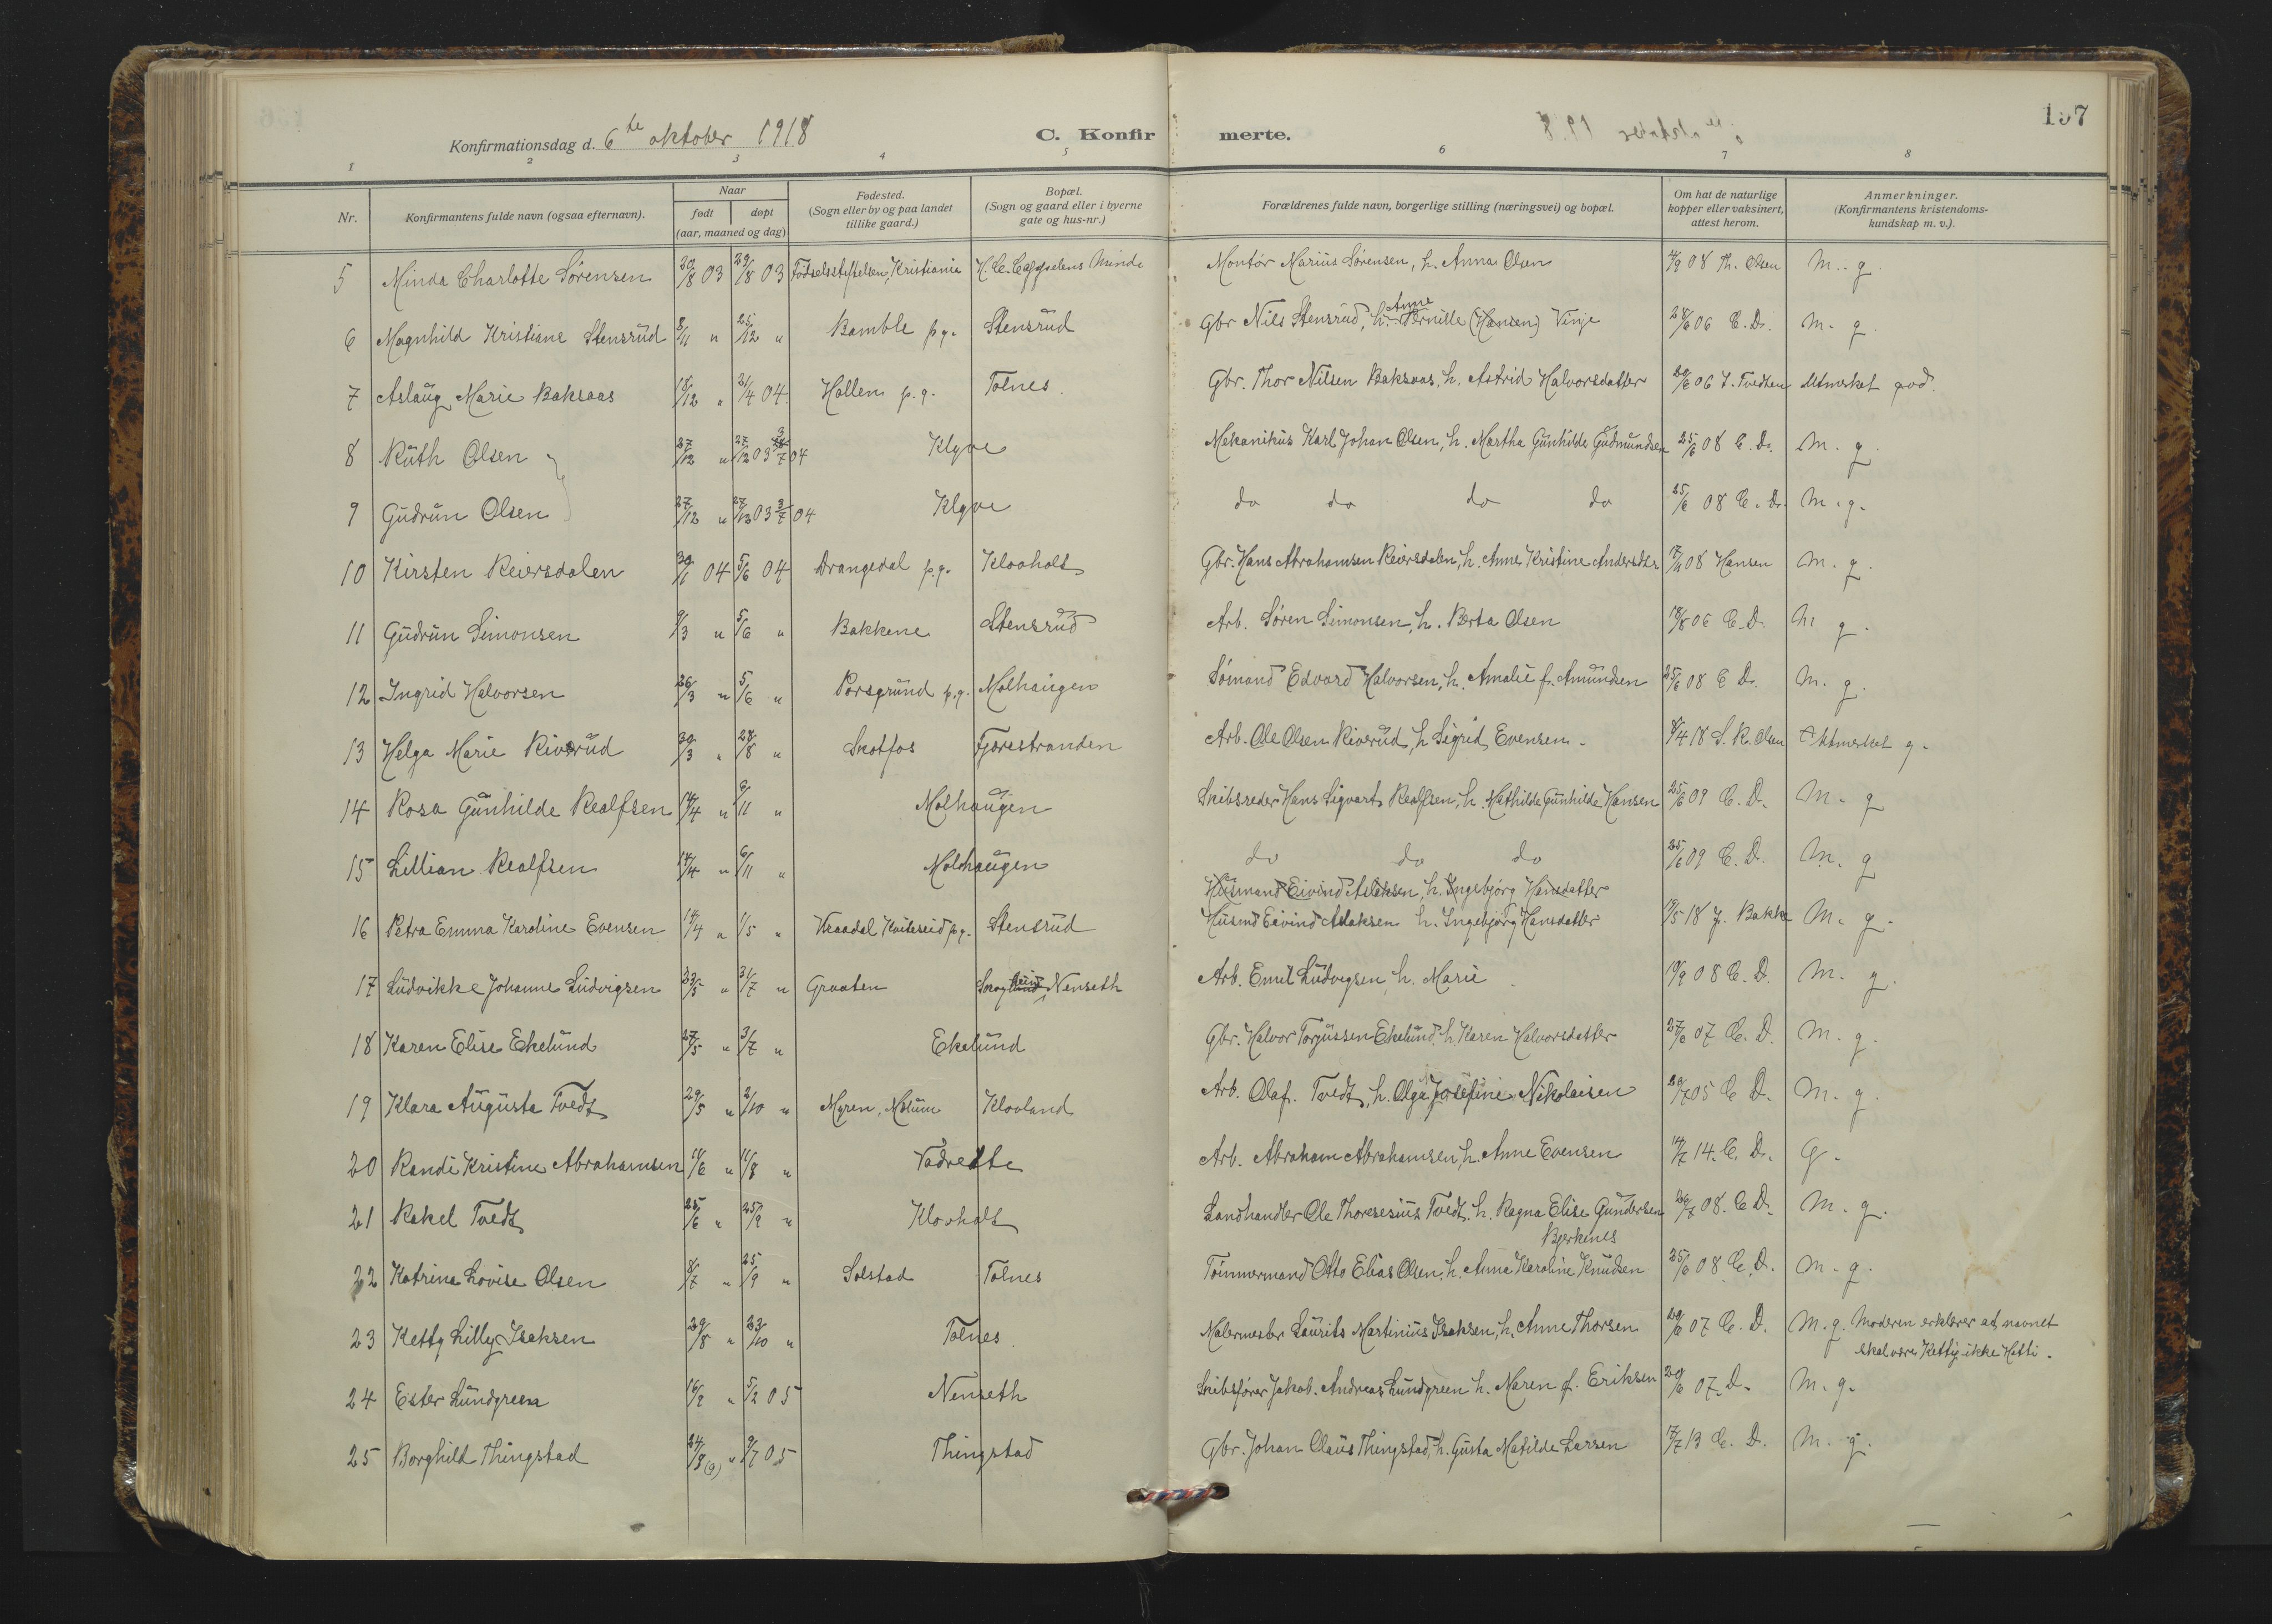 157
Konfirmationsdag d. 6te oktober 1918
C. Konfirmerte.
1 2 3 4 5 6 7 8
Nr. Konfirmantens fulde navn (ogsaa efternavn). Naar født døpt (aar, maaned og dag) Fødested. (Sogn eller by og paa landet tillike gaard.) Bopæl. (Sogn og gaard eller i byerne gate og hus-nr.) Forældrenes fulde navn, borgerlige stilling (næringsvei) og bopæl. Om hat de naturlige kopper eller vaksinert, attest herom. Anmerkninger. (Konfirmantens kristendomskundskap m. v.).
5 Minda Charlotte Sørensen 20/8 03 29/8 03 Fødselsstiftelsen, Kristiania Minde Montør Marius Sørensen, h. Anna Olsen 4/9 08 Th. Olsen M. g.
6 Magnhild Kristiane Stensrud 8/11 " 25/12 " Bamble pg. Stensrud Gbr Nils Stensrud, h. Anne Pernille (Hansen) Vinje 28/6 06 C. D. M. g.
7 Aslaug Marie Baksaas 18/12 " 21/4 04 Hollen p.g. Tolnes Gbr. Thor Nilsen Baksaas, h. Astrid Halvorsdatter 20/6 06 T. Tvedten Utmerket god.
8 Ruth Olsen 27/12 " 27/12 03 3/7 04 Klyve Mekanikus Karl Johan Olsen, h. Martha Gunhilde Gudmundsen 25/6 08 C. D. M. g.
9 Gudrun Olsen 27/12 " 27/12 03 3/7 04 Klyve do do do do 25/6 08 C. D. M. g.
10 Kirsten Reiersdalen 30/1 04 5/6 04 Drangedal p.g. Klovholt Gbr. Hans Abrahamsen Reiersdalen, h. Anne Kristine Andersdtr 17/9 08 Hansen M. g.
11 Gudrun Simonsen 9/3 " 5/6 " Bakkene Stensrud Arb. Søren Simonsen, h. Berta Olsen 18/8 06 C. D. M g.
12 Ingrid Halvorsen 26/3 " 5/6 " Porsgrund p.g. Molhaugen Sømand Edvard Halvorsen, h. Amalie f. Amundsen 25/6 08 C D. M. g.
13 Helga Marie Riverud 30/3 " 28/8 " Skotfos Fjærestranden Arb. Ole Olsen Riverud, h Sigrid Evensen. 8/4 18 S. R. Olsen Utmerket g.
14 Rosa Gunhilde Realfsen 14/4 " 6/11 " Molhaugen Skibsreder Hans Sigvart Realfsen, h. Mathilde Gunhilde Hansen 25/6 09 C. D. M. g
15 Lillian Realfsen 14/4 " 6/11 " Molhaugen do do do 25/6 09 C. D. M. g
Husmand Eivind Aslaksen, h. Ingebjørg Hansdatter
16 Petra Emma Karoline Evensen 14/4 " 1/5 " Vraadal Kviteseid pg. Stensrud Husmd Eivind Aslaksen h. Ingebjørg Hansdatter 19/5 18 J. Bakke M. g.
17 Ludvikke Johanne Ludvigsen 23/5 " 31/7 " Graaten Nenseth Arb. Emil Ludvigsen, h. Marie 19/9 08 C. D. M. g.
18 Karen Elise Ekelund 27/5 " 3/7 " Ekelund Gbr. Halvor Torjussen Ekelund, h. Karen Halvorsdatter 27/6 07 C. D. M. g.
19 Klara Augusta Tvedt 29/5 " 2/10 " Myren, Mælum Klovland Arb. Olaf. Tvedt, h. Olga Josefine Nikolaisen 20/7 05 C D. M. g.
20 Randi Kristine Abrahamsen 11/6 " 11/8 " Vadrette Arb. Abraham Abrahamsen, h. Anne Evensen 14/7 14. C. D. G.
21 Rakel Tvedt 25/6 " 25/9 " Klovholt Landhandler Ole Thoresesius Tvedt, h. Ragna Elise Gundersen Bjerkenes 20/7 08. C D. M. g.
22 Katrine Lovise Olsen 8/7 " 25/9 " Solstad Tolnes Tømmermand Otto Elias Olsen, h. Anna Karoline Knudsen 25/6 08 C. D. M. g.
23 Ketty Lilly Isaksen 29/8 " 23/10 " Tolnes Malermester Laurits Martinius Isaksen, h. Anne Thorsen 20/6 07 C. D. M. g. Moderen erklærer at navnet
skal være Ketty ikke Hetti.
24 Ester Lundgreen 16/9 " 5/2 05 Nenseth Skibsfører Jakob. Andreas Lundgreen h. Maren f. Eriksen 20/6 07. D. M. g.
25 Borghild Thingstad 24/8 (9) " 9/7 05 Thingstad Gbr. Johan Claus Thingstad, h. Gusta Matilde Larsen 17/7 13 C. D. M. g.